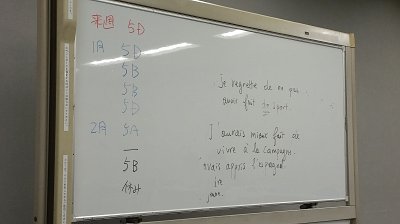 来週 5D
1月 5D
5B
5B
5D
2月 5A
—
5B
je regrette de ne pas
avoir fait du sport.
J'aurais mieux fait de
vivre à la campagne
avais appris l'espagnol